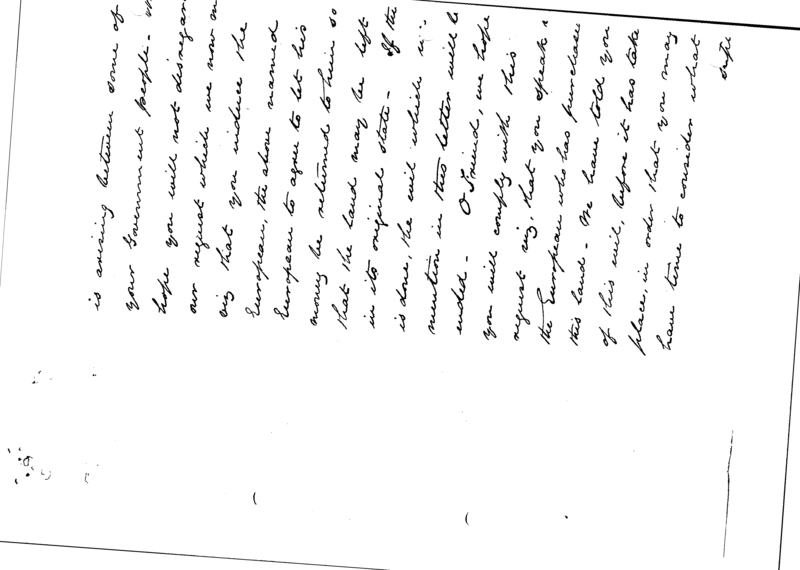 is arising between some of
your Government people. 
hope you will not disregar
our request which we now m
viz that you induce the
European, the above named
European to agree to let his
money be returned to him so
that the land may be left
in its original state. If the
is done, the evil which w
mention in this letter will b
ended. O Friend, we hope
you will comply with this
request viz, that you speak
the European who has purchase
this land. We have told you
of this evil, before it has take
place, in order that you may
have time to consider what